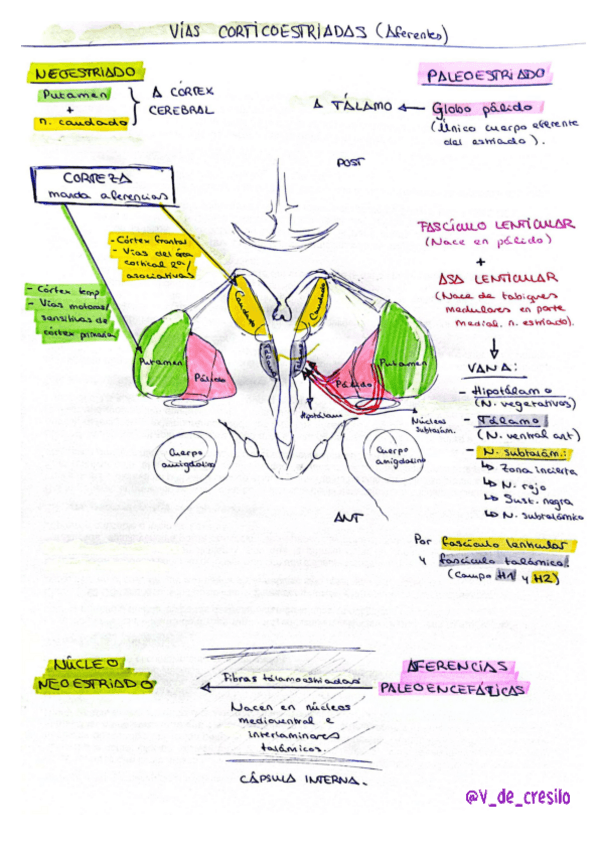 VÍAS CORTICOESTRIADAS (Aferentes)
NEOESTRIADO
Putamen
+
n. caudado
A CÓRTEX
CEREBRAL
PALEOESTRIADO
A TÁLAMO ← Globo pálido
(Único cuerpo eferente
del estriado).
POST
CORTEZA
manda aferencias
- Córtex frontal
- Vías del área
cortical 2ª/
asociativas
- Córtex temp.
- Vías motoras/
sensitivas de
córtex primaria
FASCÍCULO LENTICULAR
(Nace en pálido)
+
ASA LENTICULAR
(Nace de tabiques
medulares en parte
medial n. estriado).
Caudado
Caudado
Putamen
Pálido
Pálido
Putamen
Hipotálamo
Núcleos
Subtalám.
VAN A:
- Hipotálamo
(N. vegetativos)
- Tálamo
(N. ventral ant)
- N. subtalám.:
↳ Zona incierta
↳ N. rojo
↳ Sust. negra
↳ N. subtalámico
Cuerpo
amigdalino
Cuerpo
amigdalino
ANT
Por fascículo lenticular
y fascículo talámico.
(Campo H1 y H2)
NÚCLEO
NEOESTRIADO
Fibras tálamoestriadas
Nacen en núcleos
medioventral e
interlaminares
talámicos.
CÁPSULA INTERNA.
AFERENCIAS
PALEOENCEFÁTICAS
@V_de_cresilo